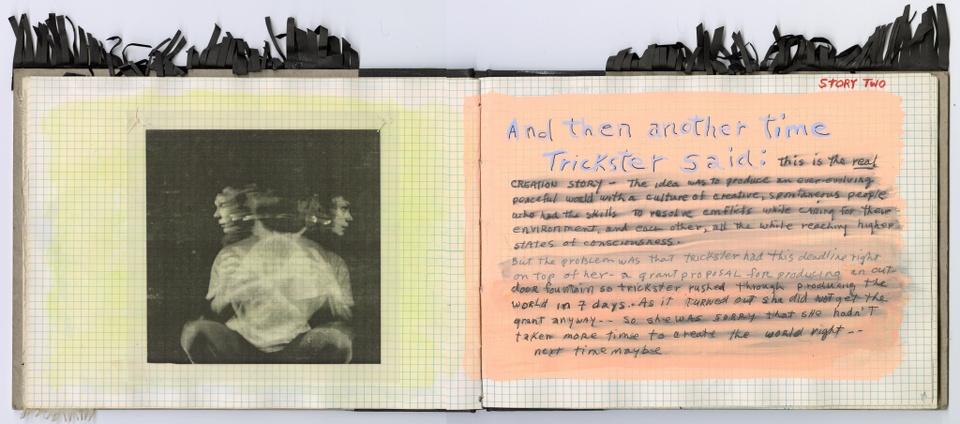 STORY TWO
And then another time
Trickster said: this is the real
CREATION STORY - The idea was to produce an ever-evolving
peaceful world with a culture of creative, spontaneous people
who had the skills to resolve conflicts while caring for their
environment, and each other, all the while reaching higher
states of consciousness.
But the problem was that trickster had this deadline right
on top of her - a grant proposal for producing an out-
door fountain so trickster rushed through producing the
world in 7 days. As it turned out she did not get the
grant anyway -- So she was sorry that she hadn't
taken more time to create the world right --
next time maybe